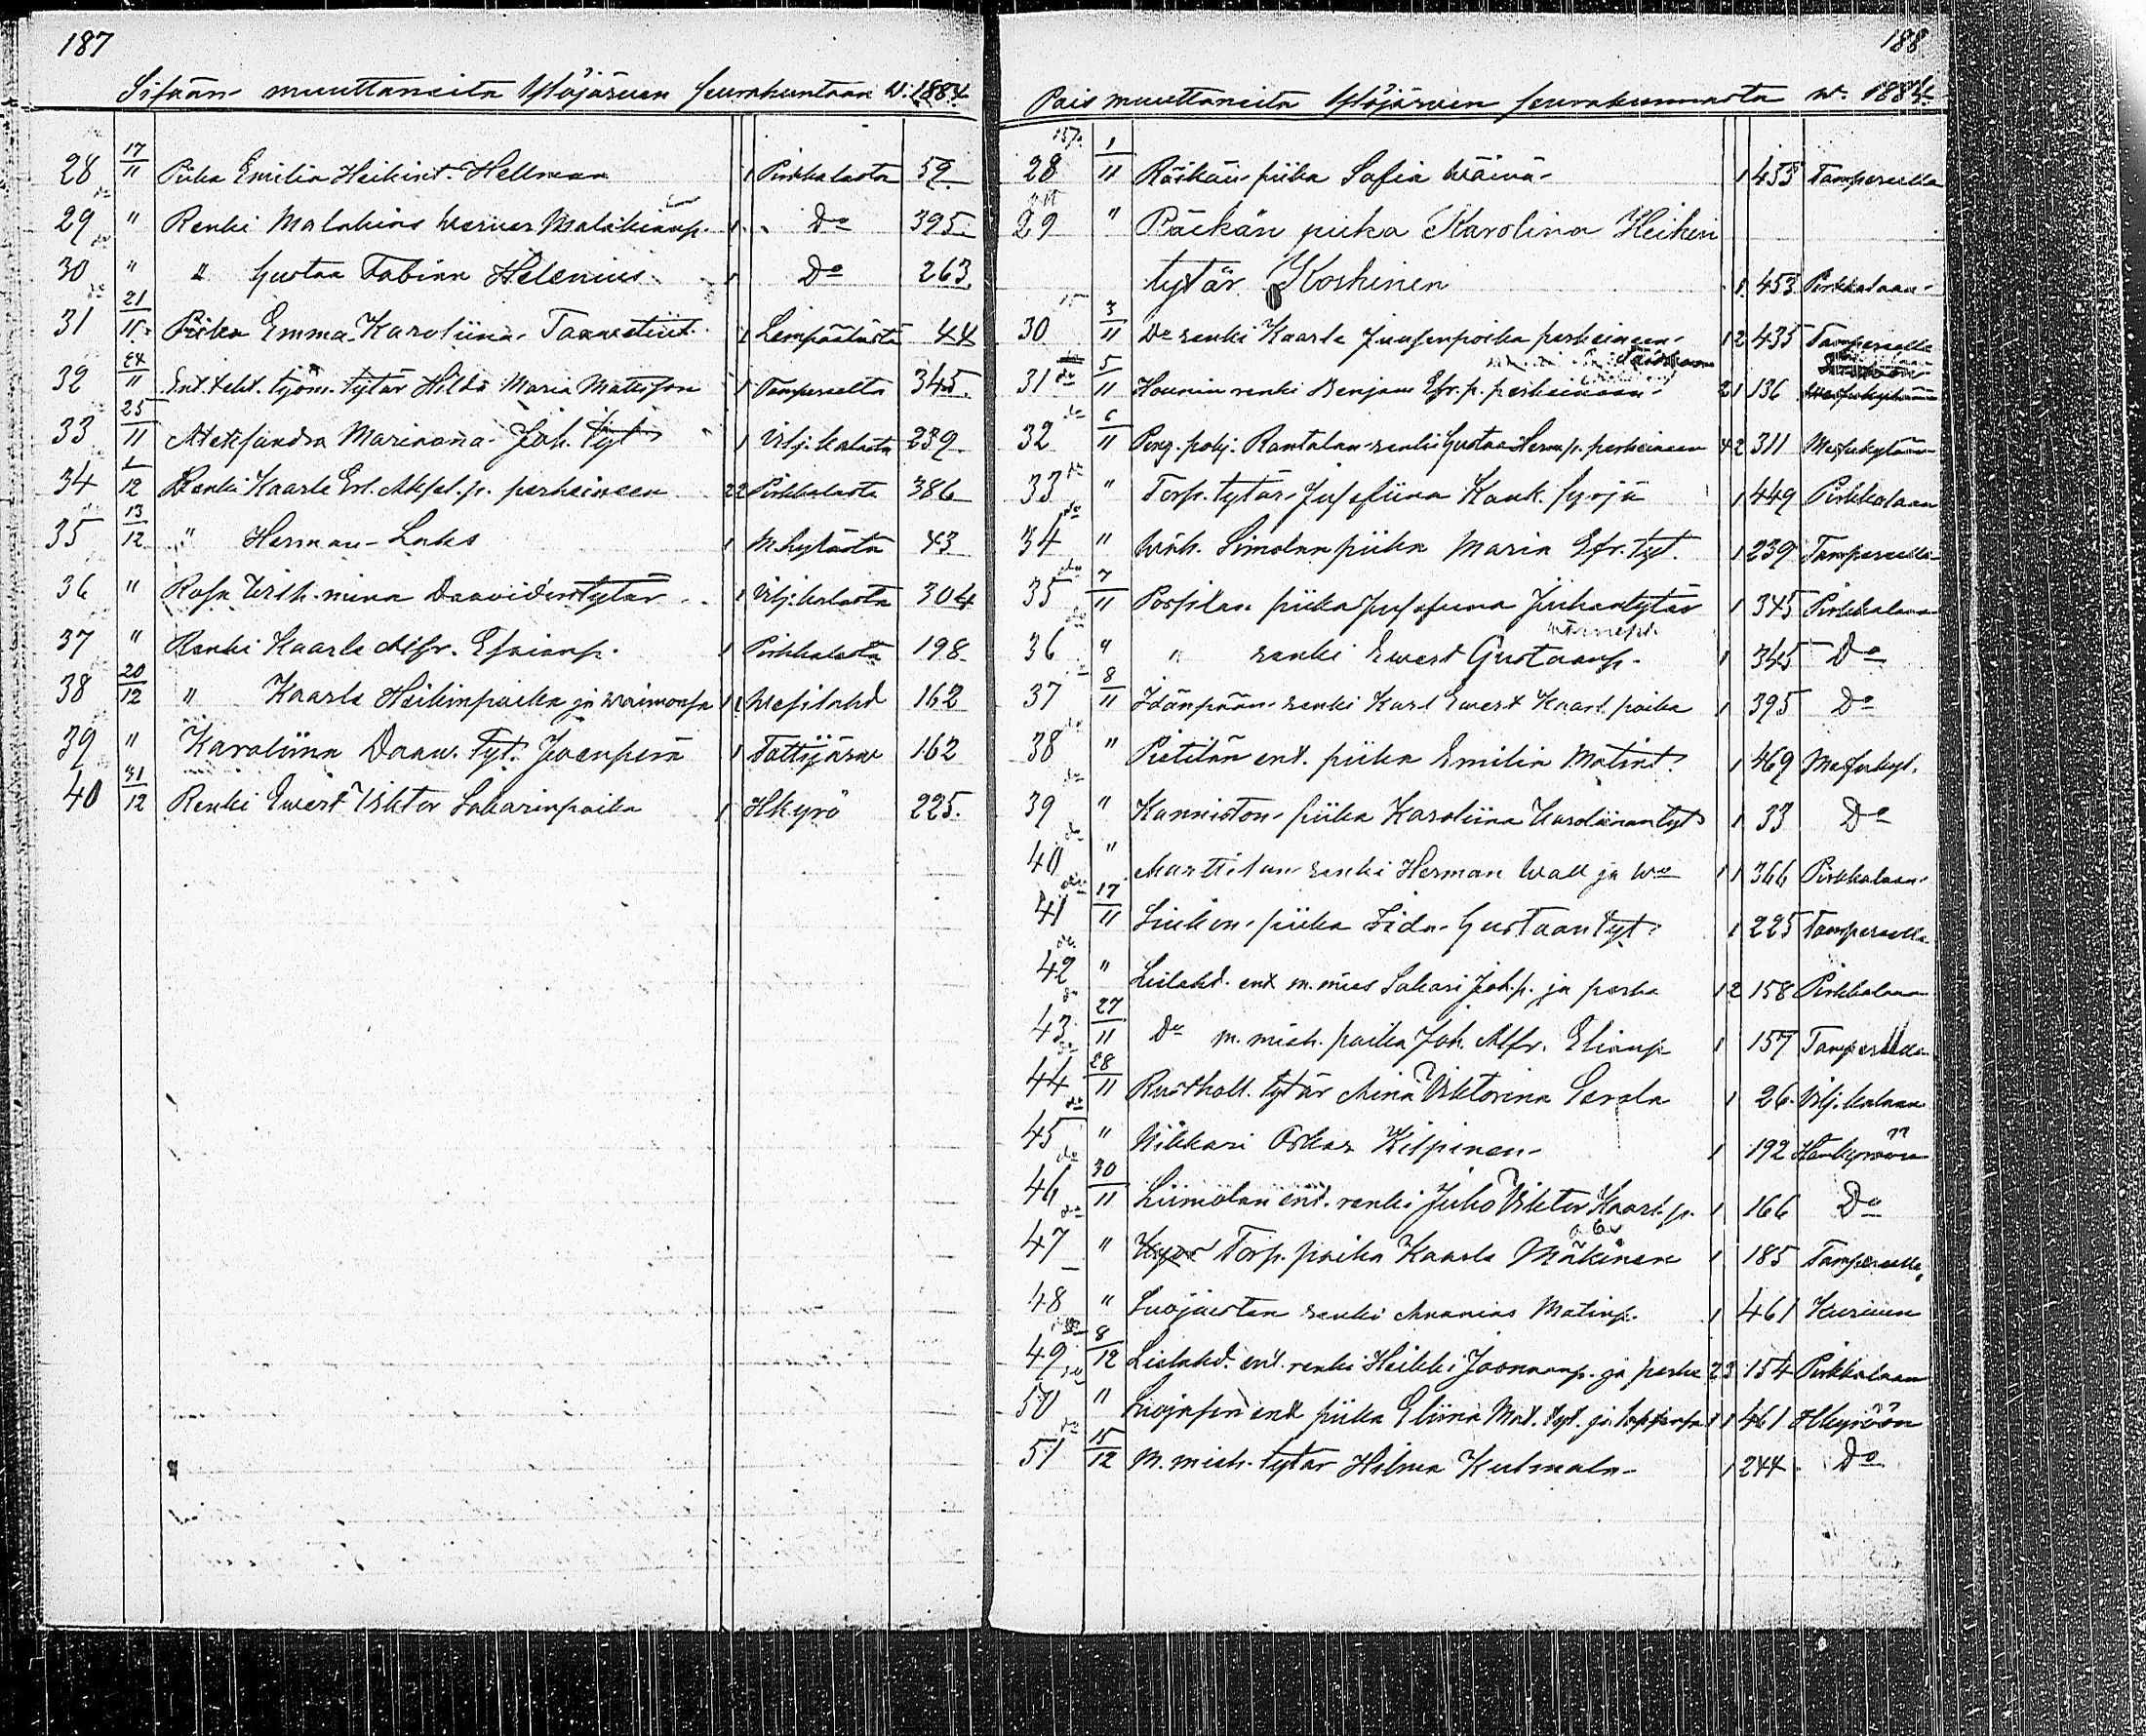 187
Sisään muuttaneita Ylöjärven seurakuntaan w. 1884.
28 17/11 Piika Emilia Heikint. Hellman 1 Pirkkalasta 59
29 " Renki Malakias Werner Malakianp. 1 Do 395
30 " " Gustaa Fabian Helenius 1 Do 263
31 21/11 Piika Emma Karoliina Taavetint. 1 Lempäälästä 44
32 24/11 Ent. teht. työm. tytär Hilda Maria Mattsson 1 Tampereelta 345
33 25/11 Aleksandra Marianna Joh. tyt 1 Vilj.kalasta 239
34 1/12 Renki Kaarle Erl. Aksel.p. perheineen 2 2 Pirkkalasta 386
35 13/12 " Herman Laks 1 M.kylästä 43
36 " Rosa Wilh.mina Daavidintytär 1 Vilj.kalasta 304
37 " Renki Kaarle Alfr. Esaianp. 1 Pirkkalasta 198
38 20/12 " Kaarle Heikinpoika ja waimonsa 1 1 Wesilahd 162
39 " Karoliina Daav. tyt. Joenperä 1 Tottijärv 162
40 31/12 Renki Ewert Viktor Sakarinpoika 1 Hkyrö 225.
188
Pois muuttaneita Ylöjärven seurakunnasta w. 1884.
28 1/11 Räikän piika Sofia Wäinä 1 453 Tampereelle
29 " Räikän piika Karolina Heikin
tytär Koskinen 1 453 Pirkkalaan
30 3/11 Do renki Kaarle Juusenpoika perheineen 1 2 435 Tampereelle
31 do 5/11 renki Benjam Efr. p. perheineen 2 1 136
32 6/11 Peng. pohj. Rantalan renki Gustaa Herm.p. perheineen 4 2 311 Messukylään
33 " Torp. tytär Josefiina Kauk. 1 449 Pirkkalaan
34 " Wäh. Simolan piika Maria Efr. tyt. 1 239 Tampereelle
35 7/11 Possilan piika Josefiina Juhantytär 1 345 Pirkkalaan
36 " " renki Ewert Gustaanp. 1 345 Do
37 8/11 Idänpään renki Karl Ewert Kaarl. poika 1 395 Do
38 " Pietilän ent. piika Emilia Matint. 1 469 Messukyl.
39 " Kanniston piika Karoliina Karoliinan tyt 1 33 Do
40 " Marttilan renki Herman Wall ja Wo 1 1 366 Pirkkalaan
41 17/11 piika Fida Gustaan tyt. 1 225 Tampereelle
42 " Lielahd. ent m. mies Sakari Joh.p. ja perhe 1 2 158 Pirkkalaan
43 27/11 Do m. mieh. poika Joh. Alfr. Elianp 1 157 Tampereelle
44 28/11 Rusthall. tytär Mina Viktorina Gerola 1 26 Vilj.kalaan
45 " Nikkari Oskar Kilpinen 1 192 Hämkyröön
46 30/11 Liimolan ent. renki Juho Viktor Kaarl. p. 1 166 Do
47 " Torp. poika Kaarle Mäkinen 1 185 Tampereelle
48 " renki Ananias Matinp. 1 461 Kuruun
49 8/12 Lielahd. ent. renki Heikki Joonaanp. ja perhe 2 3 154 Pirkkalaan
50 " ent piika Eliina Mat. tyt. ja lapsensa 1 1 461 Hkyröön
51 15/12 M. mieh. tytär Hilma Kulmala 1 244 Do